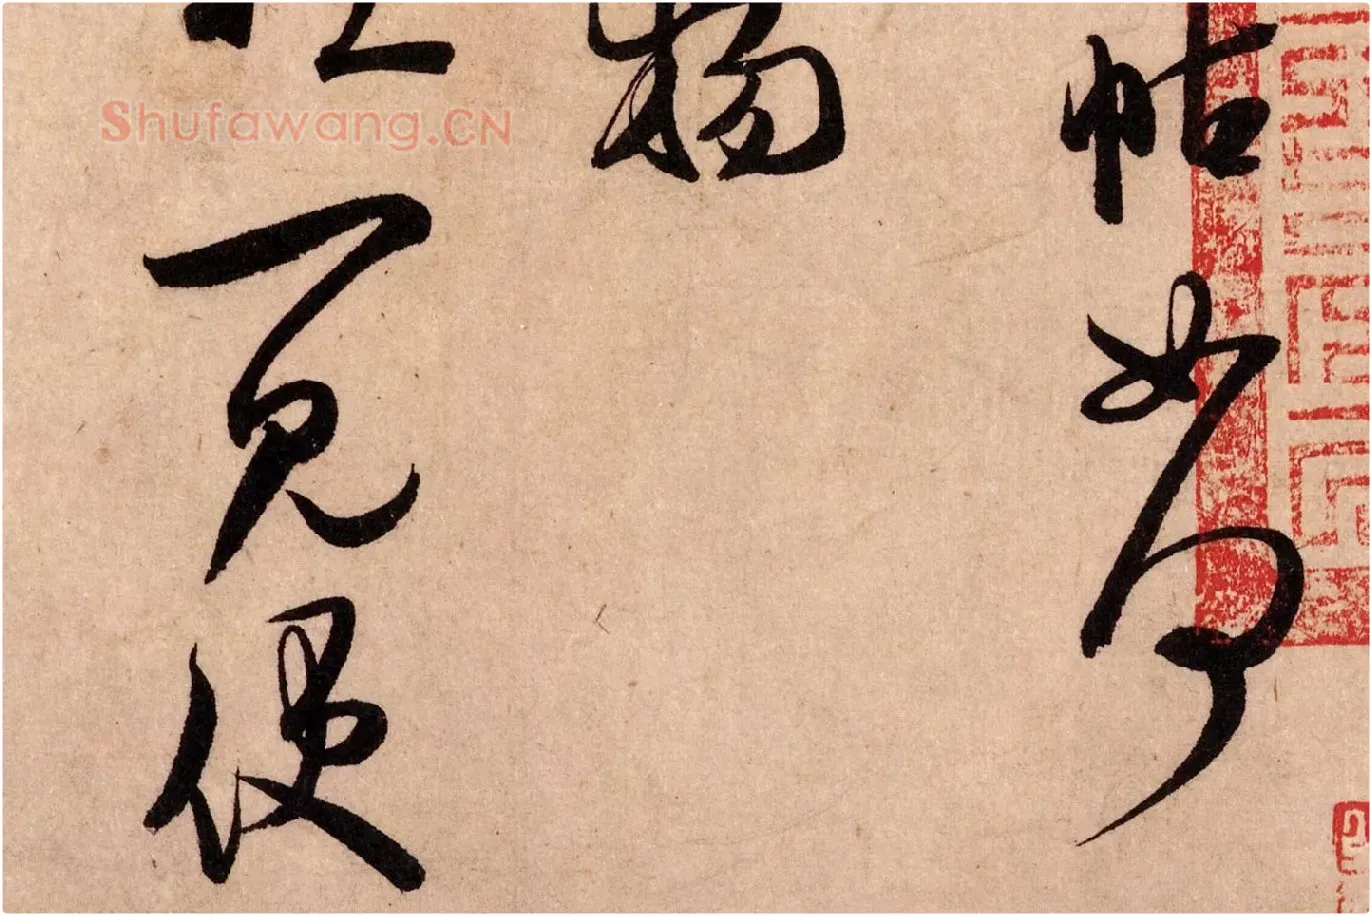 帖如何
物
一見便
Shufawang.CN